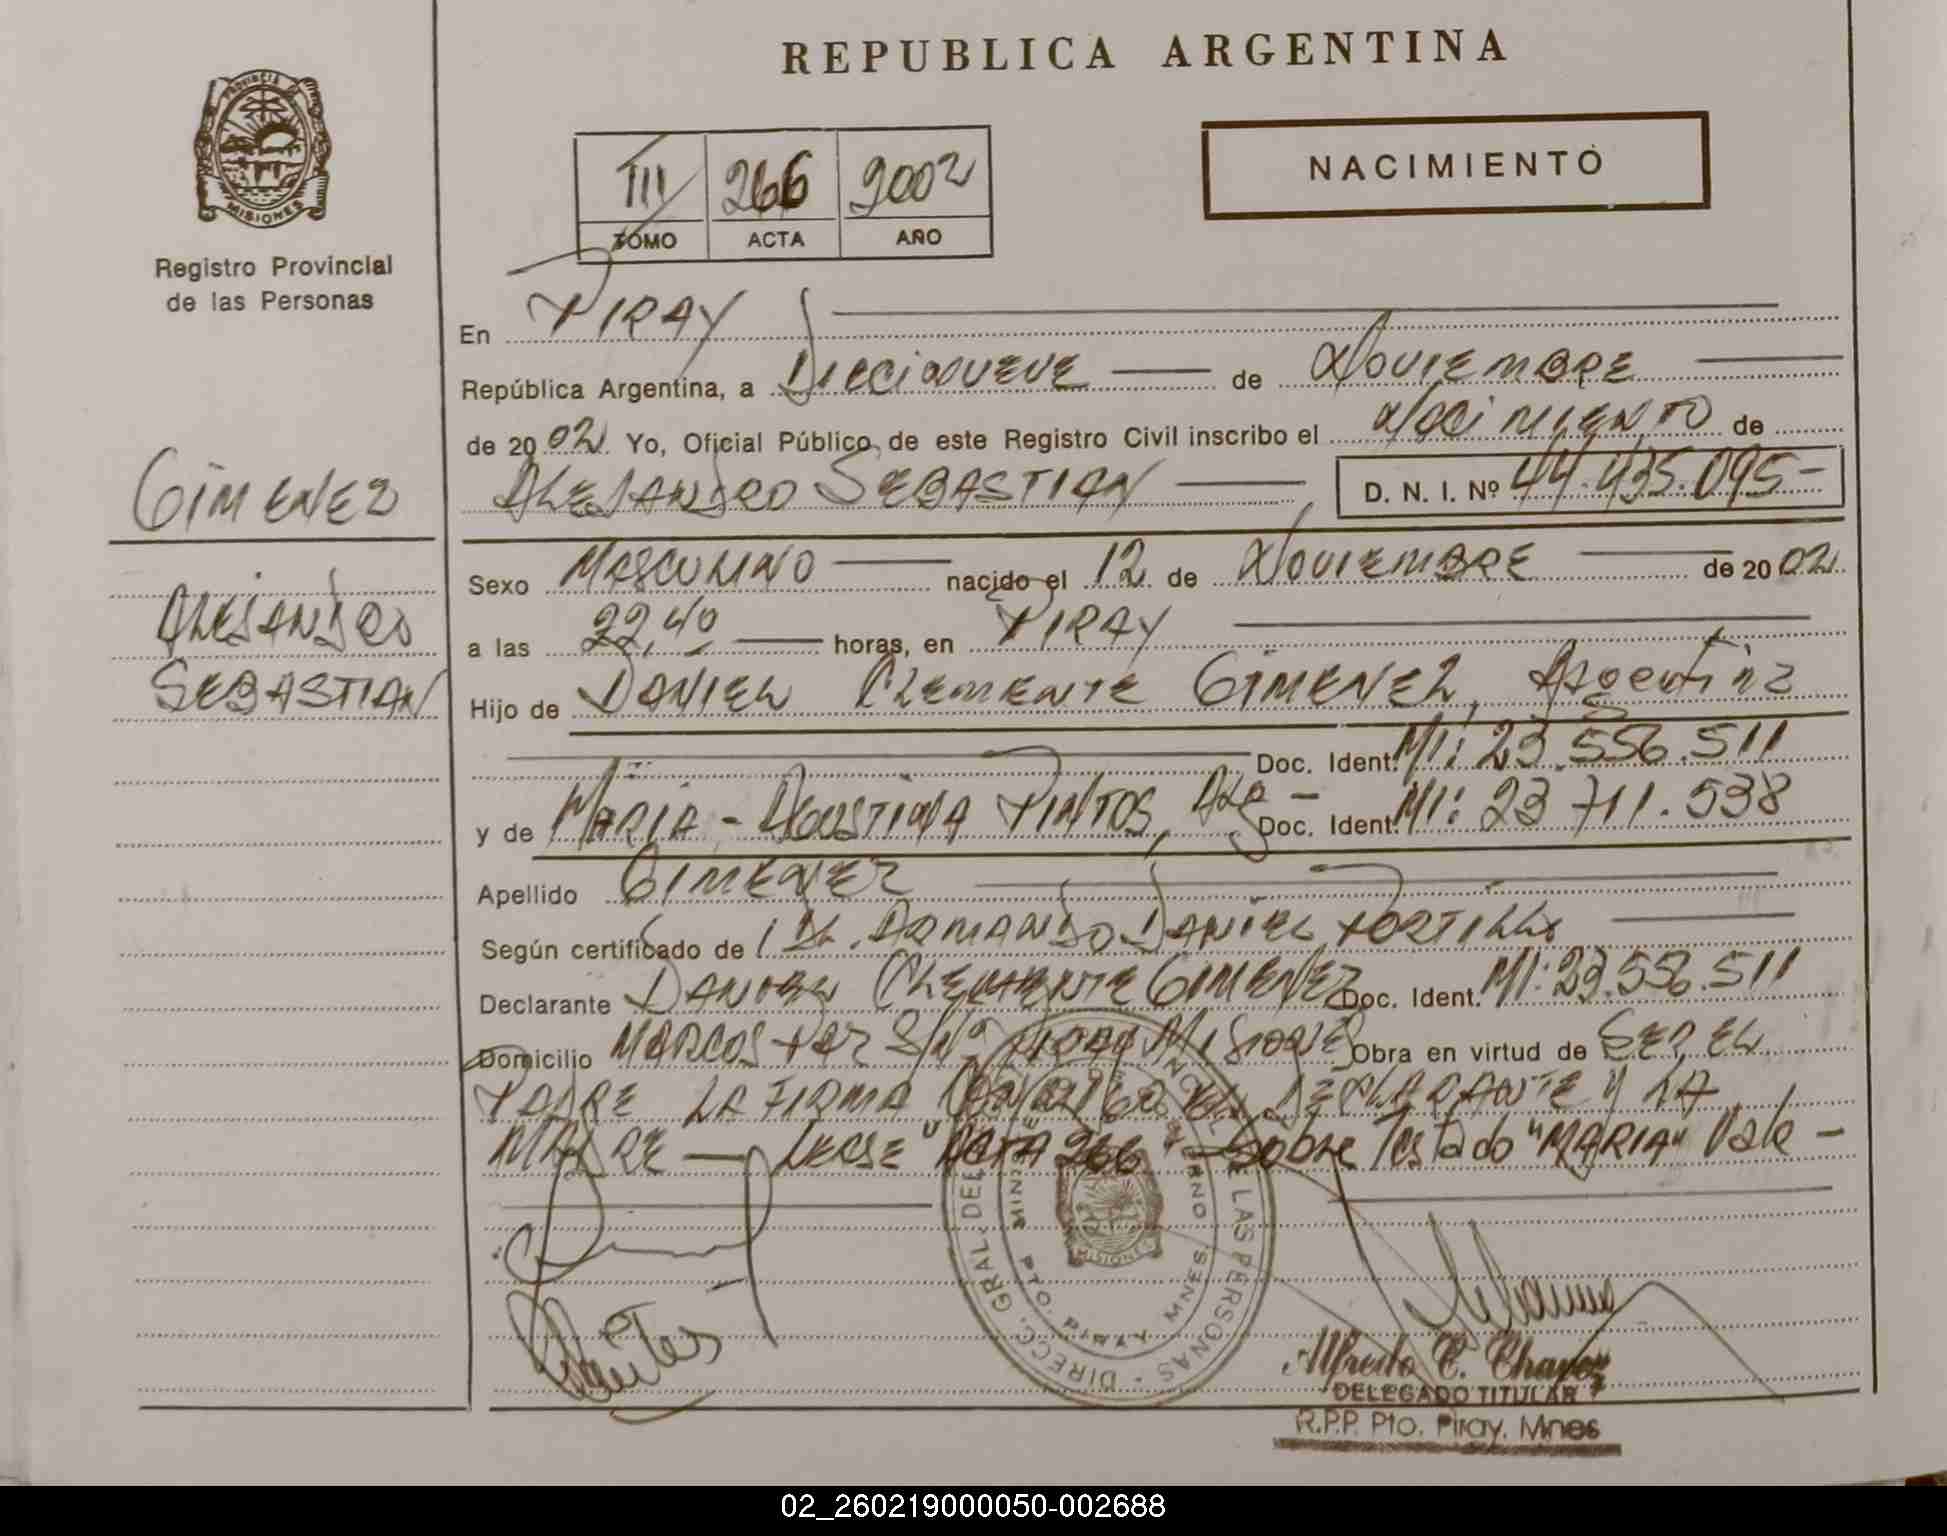 REPUBLICA ARGENTINA
PROVINCIA DE
MISIONES
Registro Provincial
de las Personas
III 266 2002
TOMO ACTA AÑO
NACIMIENTO
En PIRAY
República Argentina, a Diecinueve de Noviembre
de 2002 Yo, Oficial Público de este Registro Civil inscribo el Nacimiento de
ALEJANDRO SEBASTIAN D. N. I. Nº 44.435.095-
GIMENEZ
ALEJANDRO
SEBASTIAN
Sexo MASCULINO nacido el 12 de Noviembre de 2002
a las 22,40 horas, en PIRAY
Hijo de DANIEL CLEMENTE GIMENEZ, Argentina
Doc. Ident. MI: 23.556.511
y de MARIA - AGUSTINA PINTOS, Arg - Doc. Ident. MI: 23 711.538
Apellido GIMENEZ
Según certificado de Dr. ARMANDO DANIEL PORTILLO
Declarante DANIEL CLEMENTE GIMENEZ Doc. Ident. MI: 23.556.511
Domicilio MARCOS PAZ S/Nº PIRAY MISIONES Obra en virtud de SER EL
PADRE LA FIRMA EL DECLARANTE Y LA
MADRE — LEASE "ACTA 266" - Sobre Testado "MARIA" Vale -
DIRECC. GRAL. DEL DE LAS PERSONAS
PTO. PIRAY MNES.
MISIONES
Alfredo C. Chavez
DELEGADO TITULAR
R.P.P. Pto. Piray. Mnes
02_260219000050-002688